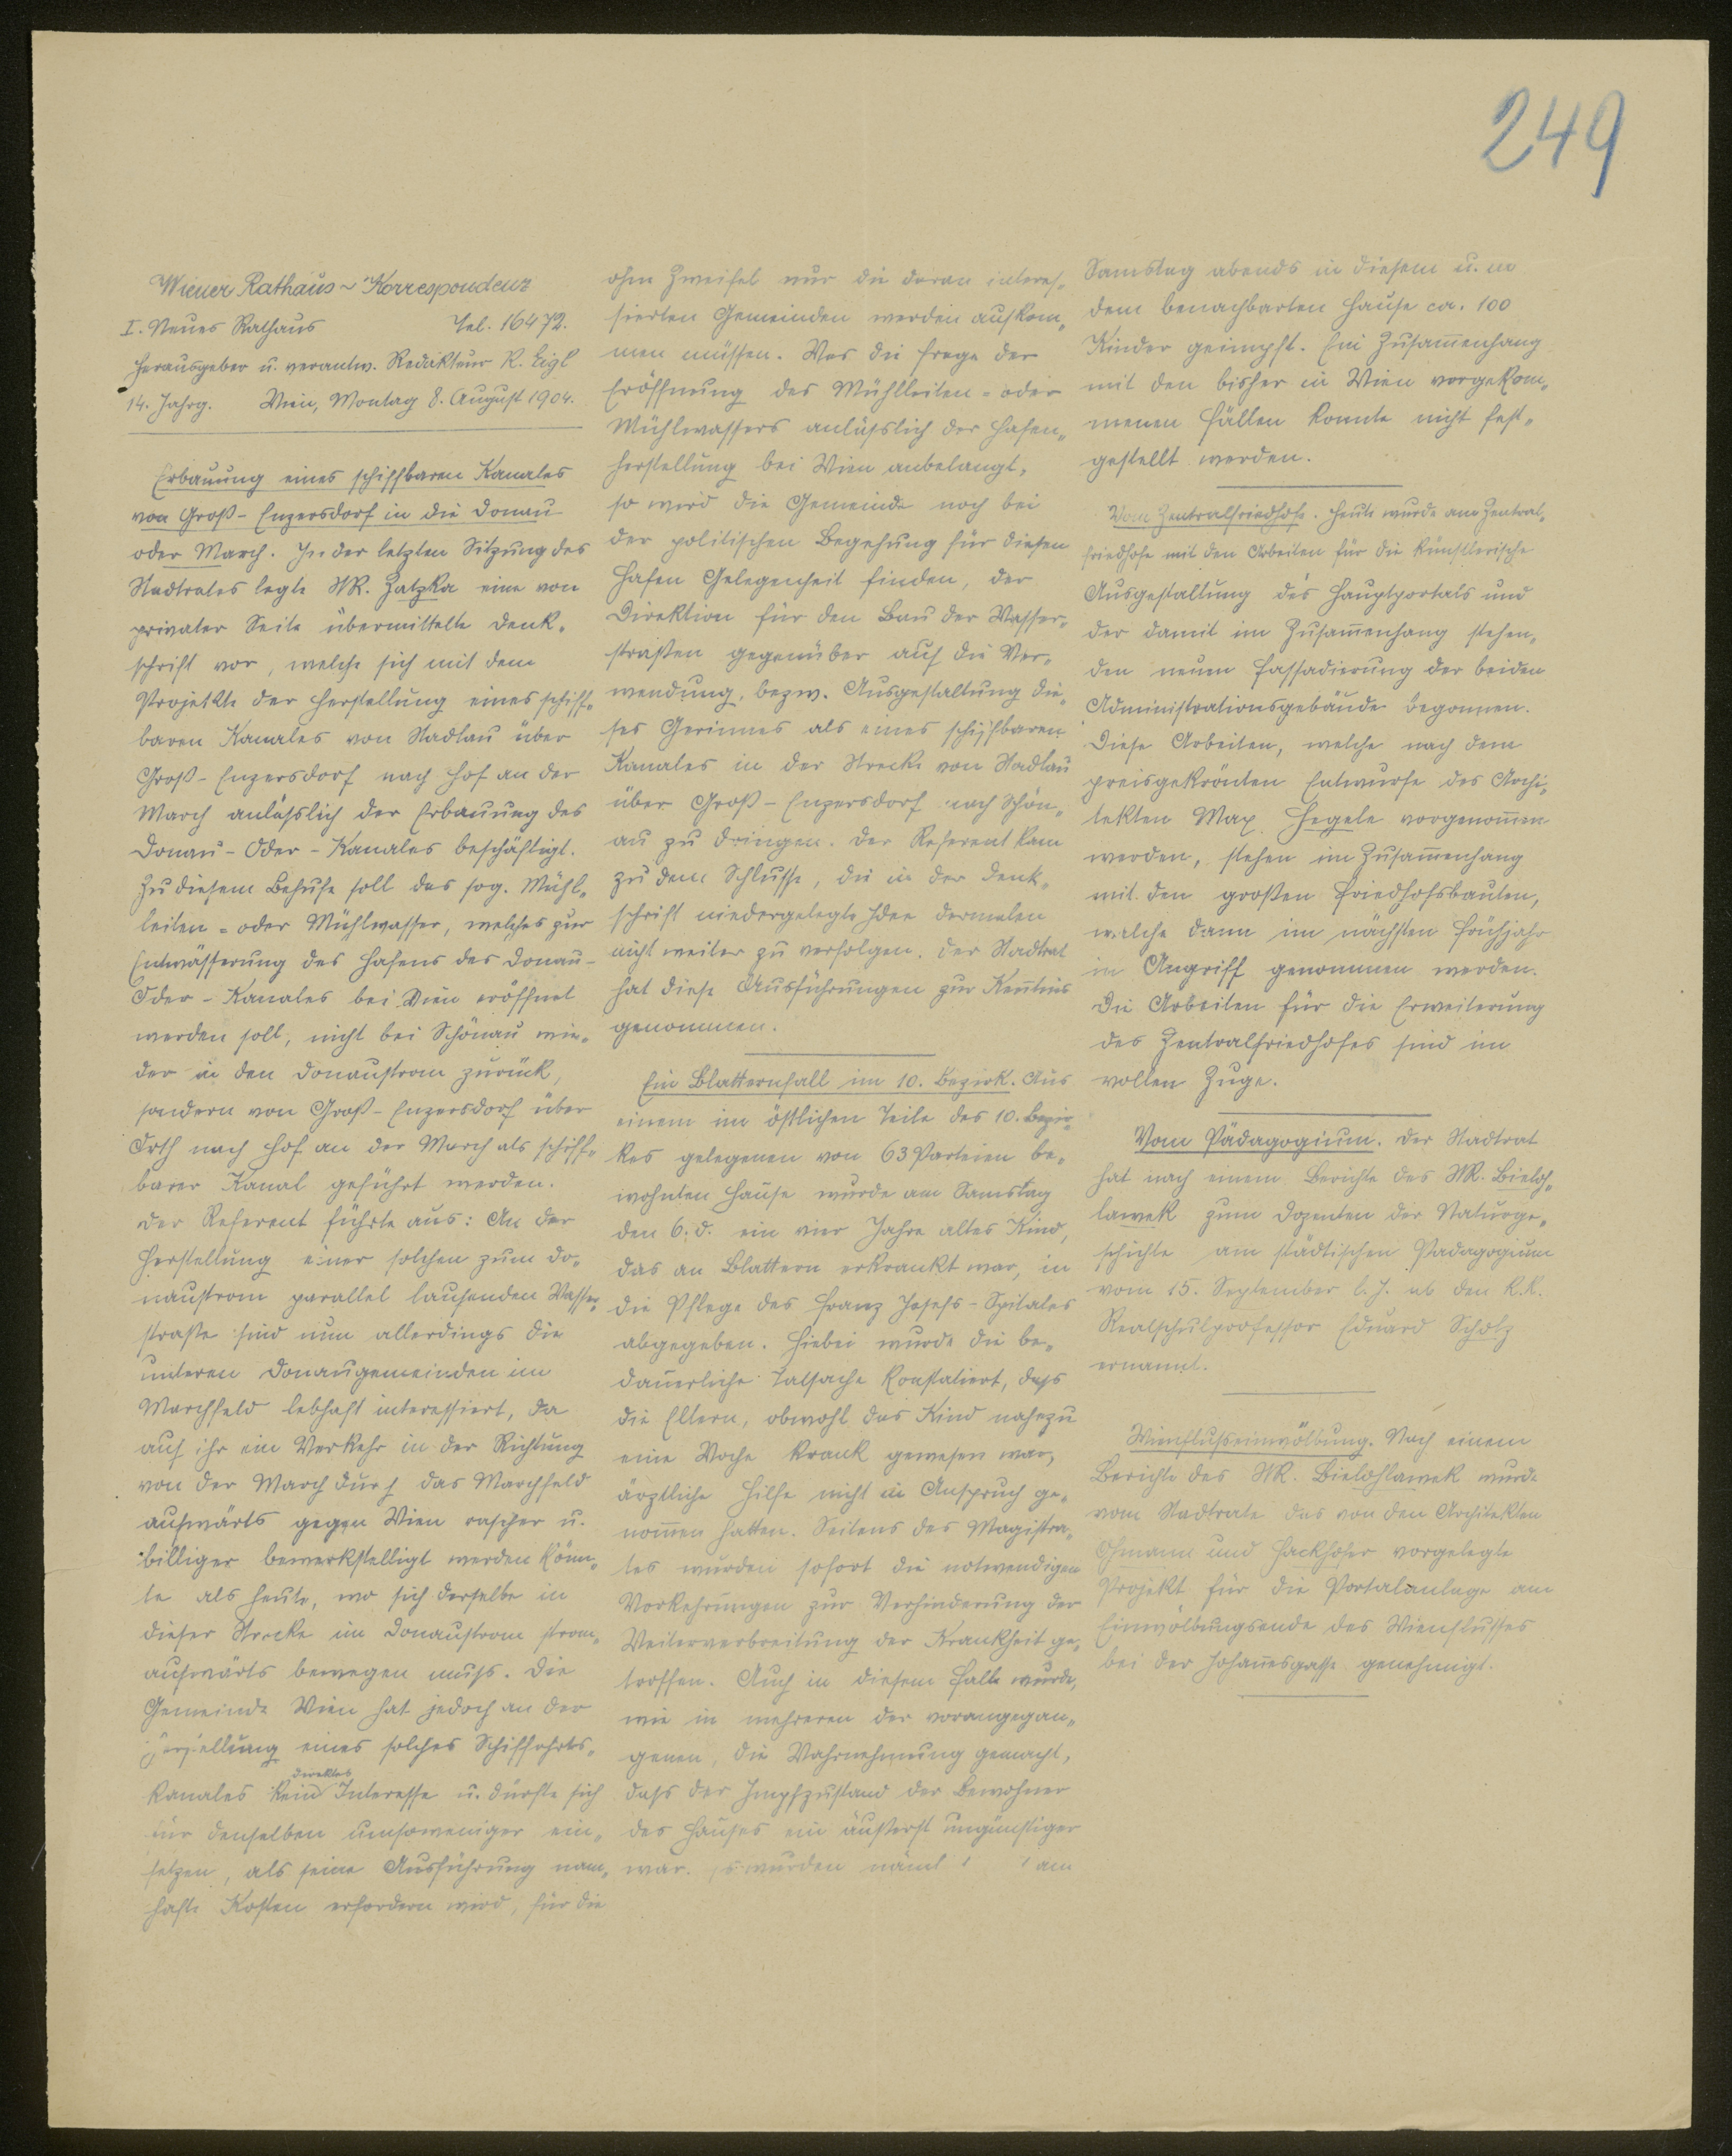 249
Wiener Rathaus-Korrespondenz
I. Neues Rathaus Tel. 16472.
Herausgeber u. verantw. Redakteur R. Eigl
14. Jahrg. Wien, Montag 8. August 1904.
Erbauung eines schiffbaren Kanales
von Groß-Enzersdorf in die Donau
oder March. In der letzten Sitzung des
Stadtrates legte StR. Zatzka eine von
privater Seite übermittelte Denk-
schrift vor, welche sich mit dem
Projekte der Herstellung eines schiff-
baren Kanales von Stadlau über
Groß-Enzersdorf nach Hof an der
March anläßlich der Erbauung des
Donau-Oder-Kanales beschäftigt.
Zu diesem Behufe soll das sog. Mühl-
leiten- oder Mühlwasser, welches zur
Entwässerung des Hafens des Donau-
Oder-Kanales bei Wien eröffnet
werden soll, nicht bei Schönau wie-
der in den Donaustrom zurück,
sondern von Groß-Enzersdorf über
Orth nach Hof an der March als schiff-
barer Kanal geführt werden.
Der Referent führte aus: An der
Herstellung einer solchen zum Do-
naustrom parallel laufenden Wasser-
straße sind nun allerdings die
unteren Donaugemeinden im
Marchfeld lebhaft interessiert, da
auf ihr ein Verkehr in der Richtung
von der March durch das Marchfeld
aufwärts gegen Wien rascher u.
billiger bewerkstelligt werden könn-
te als heute, wo sich derselbe in
dieser Strecke im Donaustrom strom-
aufwärts bewegen muß. Die
Gemeinde Wien hat jedoch an der
Herstellung eines solches Schiffahrts-
direktes
kanales kein Interesse u. dürfte sich
für denselben umsoweniger ein-
setzen, als seine Ausführung nam-
hafte Kosten erfordern wird, für die
ohne Zweifel nur die daran interes-
sierten Gemeinden werden aufkom-
men müssen. Was die Frage der
Eröffnung des Mühlleiten- oder
Mühlwassers anläßlich der Hafen-
herstellung bei Wien anbelangt,
so wird die Gemeinde noch bei
der politischen Begehung für diesen
Hafen Gelegenheit finden, der
Direktion für den Bau der Wasser-
straßen gegenüber auf die Ver-
wendung, bezw. Ausgestaltung die-
ses Gerinnes als eines schiffbaren
Kanales in der Strecke von Stadlau
über Groß-Enzersdorf nach Schön-
au zu dringen. Der Referent kam
zu dem Schlusse, die in der Denk-
schrift niedergelegte Idee dermalen
nicht weiter zu verfolgen. Der Stadtrat
hat diese Ausführungen zur Kenntnis
genommen.
Ein Blatternfall im 10. Bezirk. Aus
einem im östlichen Teile des 10. Bezir-
kes gelegenen von 63 Parteien be-
wohnten Hause wurde am Samstag
den 6. d. ein vier Jahre altes Kind,
das an Blattern erkrankt war, in
die Pflege des Franz Josefs-Spitales
abgegeben. Hiebei wurde die be-
dauerliche Tatsache konstatiert, daß
die Eltern, obwohl das Kind nahezu
eine Woche krank gewesen war,
ärztliche Hilfe nicht in Anspruch ge-
nom̄en hatten. Seitens des Magistra-
tes wurden sofort die notwendigen
Vorkehrungen zur Verhinderung der
Weiterverbreitung der Krankheit ge-
troffen. Auch in diesem Falle wurde,
wie in mehreren der vorangegan-
genen, die Wahrnehmung gemacht,
daß der Impfzustand der Bewohner
des Hauses ein äußerst ungünstiger
war. Es wurden am
Samstag abends in diesem u. in
dem benachbarten Hause ca. 100
Kinder geimpft. Ein Zusam̄enhang
mit den bisher in Wien vorgekom-
menen Fällen konnte nicht fest-
gestellt werden.
Vom Zentralfriedhofe. Heute wurde am Zentral-
friedhofe mit den Arbeiten für die künstlerische
Ausgestaltung des Hauptportals und
der damit im Zusam̄enhang stehen-
den neuen Fassadierung der beiden
Administrationsgebäude begonnen.
Diese Arbeiten, welche nach dem
preisgekrönten Entwurfe des Archi-
tekten Max Hegele vorgenom̄en
werden, stehen im Zusam̄enhang
mit den großen Friedhofsbauten,
welche dann im nächsten Frühjahr
in Angriff genommen werden.
Die Arbeiten für die Erweiterung
des Zentralfriedhofes sind im
vollen Zuge.
Vom Pädagogium. Der Stadtrat
hat nach einem Berichte des StR. Bieloh-
lawek zum Dozenten der Naturge-
schichte am städtischen Pädagogium
vom 15. September l. J. ab den k.k.
Realschulprofessor Eduard Scholz
ernannt.
Wienflußeinwölbung. Nach einem
Berichte des StR. Bielohlawek wurde
vom Stadtrate das von den Architekten
Ohmann und Hackhofer vorgelegte
Projekt für die Portalanlage am
Einwölbungsende des Wienflusses
bei der Johan̄esgasse genehmigt.